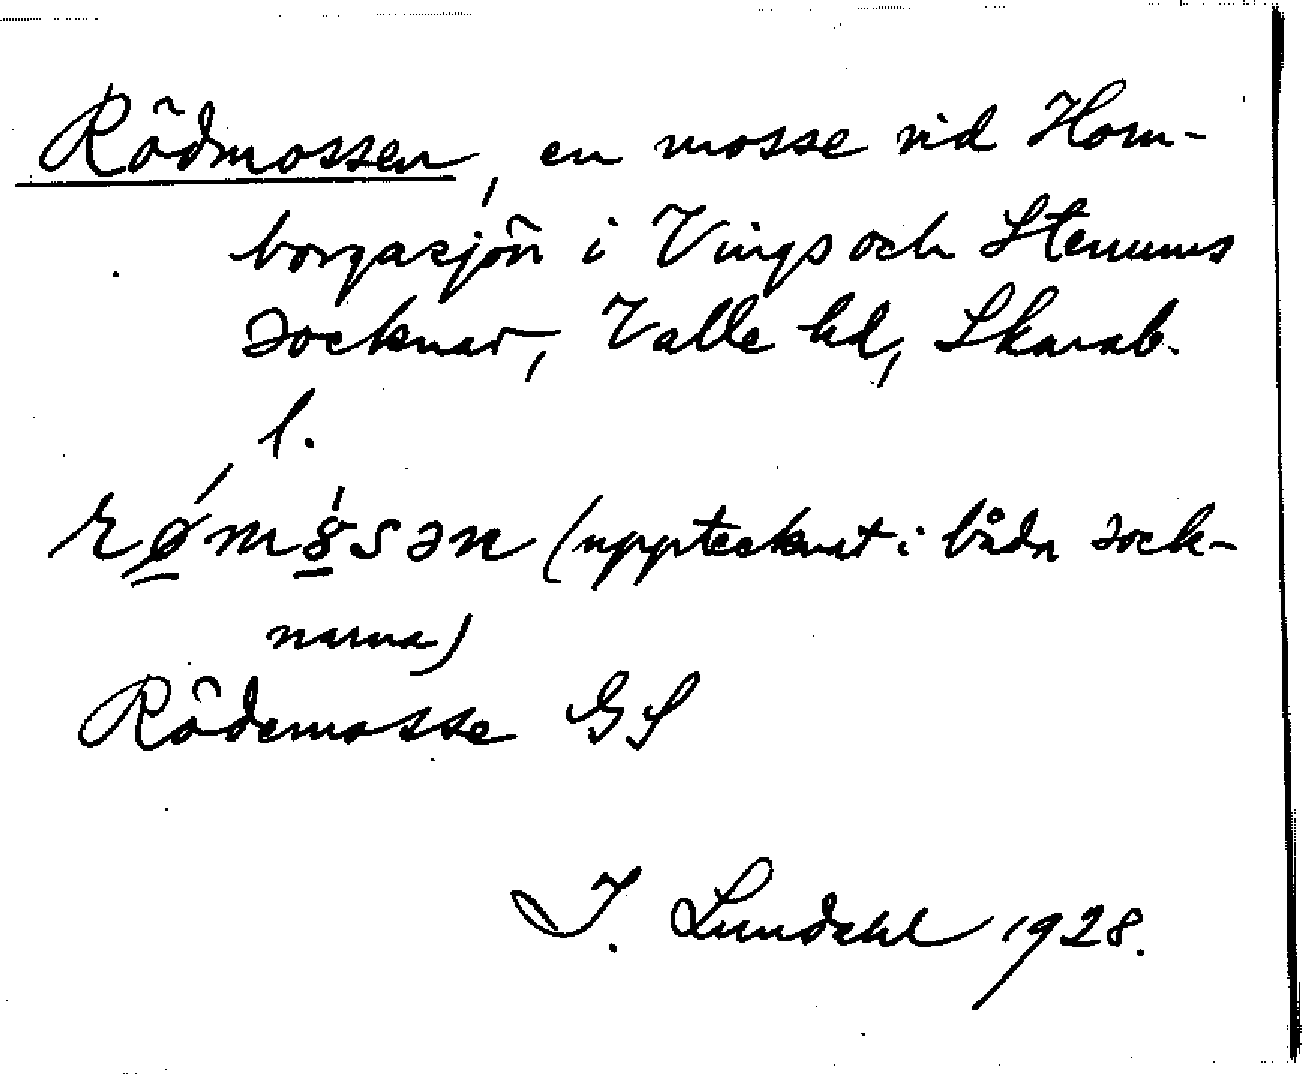 Rödmossen, en mosse vid Horn-
borgasjön i Vings och Stenums
socknar, Valle hd, Skarab.
l.
(upptecknat i båda sock-
narna)
Rödemosse GS
I. Lundahl 1928.